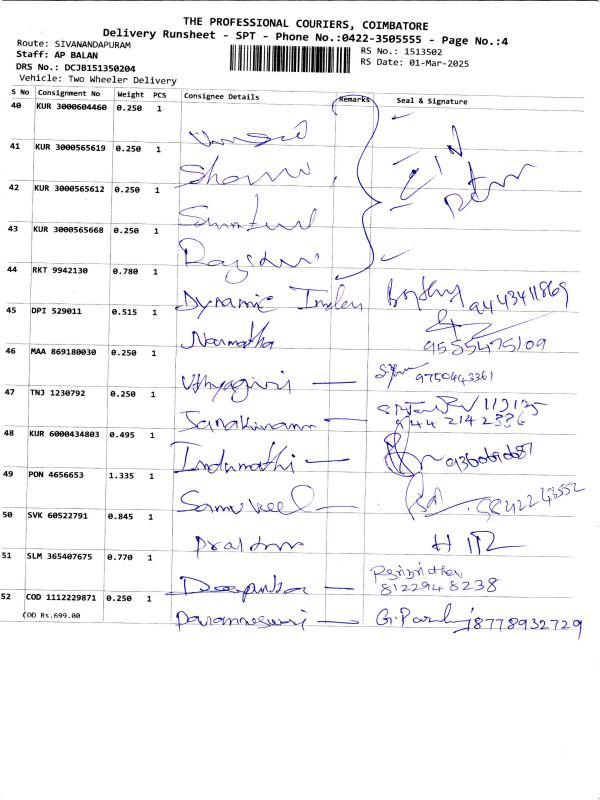 THE PROFESSIONAL COURIERS, COIMBATORE
Delivery Runsheet - SPT - Phone No.:0422-3505555 - Page No.:4
Route: SIVANANDAPURAM
RS No.: 1513502
Staff: AP BALAN
RS Date: 01-Mar-2025
DRS No.: DCJB151350204
Vehicle: Two Wheeler Delivery
S No Consignment No Weight PCS Consignee Details Remarks Seal & Signature
40 KUR 3000604460 0.250 1
41 KUR 3000565619 0.250 1
42 KUR 3000565612 0.250 1
43 KUR 3000565668 0.250 1
44 RKT 9942130 0.780 1
Dynamic 9443411869
45 DPI 529011 0.515 1
Narmatha
46 MAA 869180030 0.250 1
Vithyagiri 9750443361
47 TNJ 1230792 0.250 1
Janakiraman
48 KUR 6000434803 0.495 1
Indumathi
49 PON 4656653 1.335 1
50 SVK 60522791 0.845 1
51 SLM 365407675 0.770 1
Deepika 8122948238
52 COD 1112229871 0.250 1
COD Rs.699.00
Parameswari 8778932729